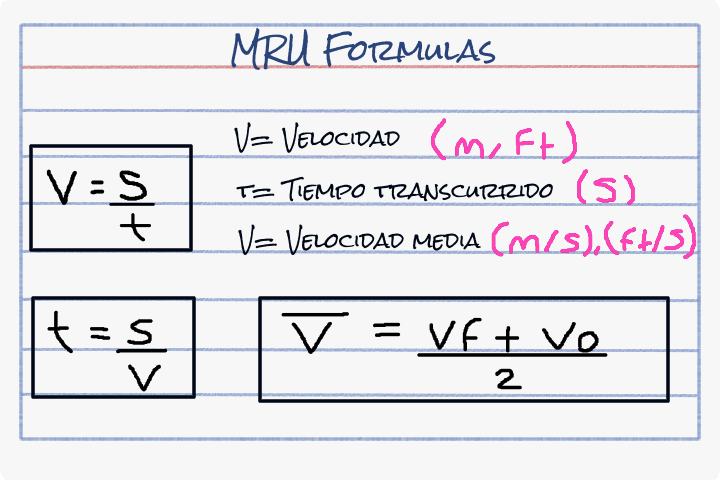 MRU FORMULAS
V= VELOCIDAD (m, Ft)
V = S/t
t= TIEMPO TRANSCURRIDO (S)
V= VELOCIDAD MEDIA (m/s),(ft/s)
t = S/V
V̅ = (Vf + Vo)/2